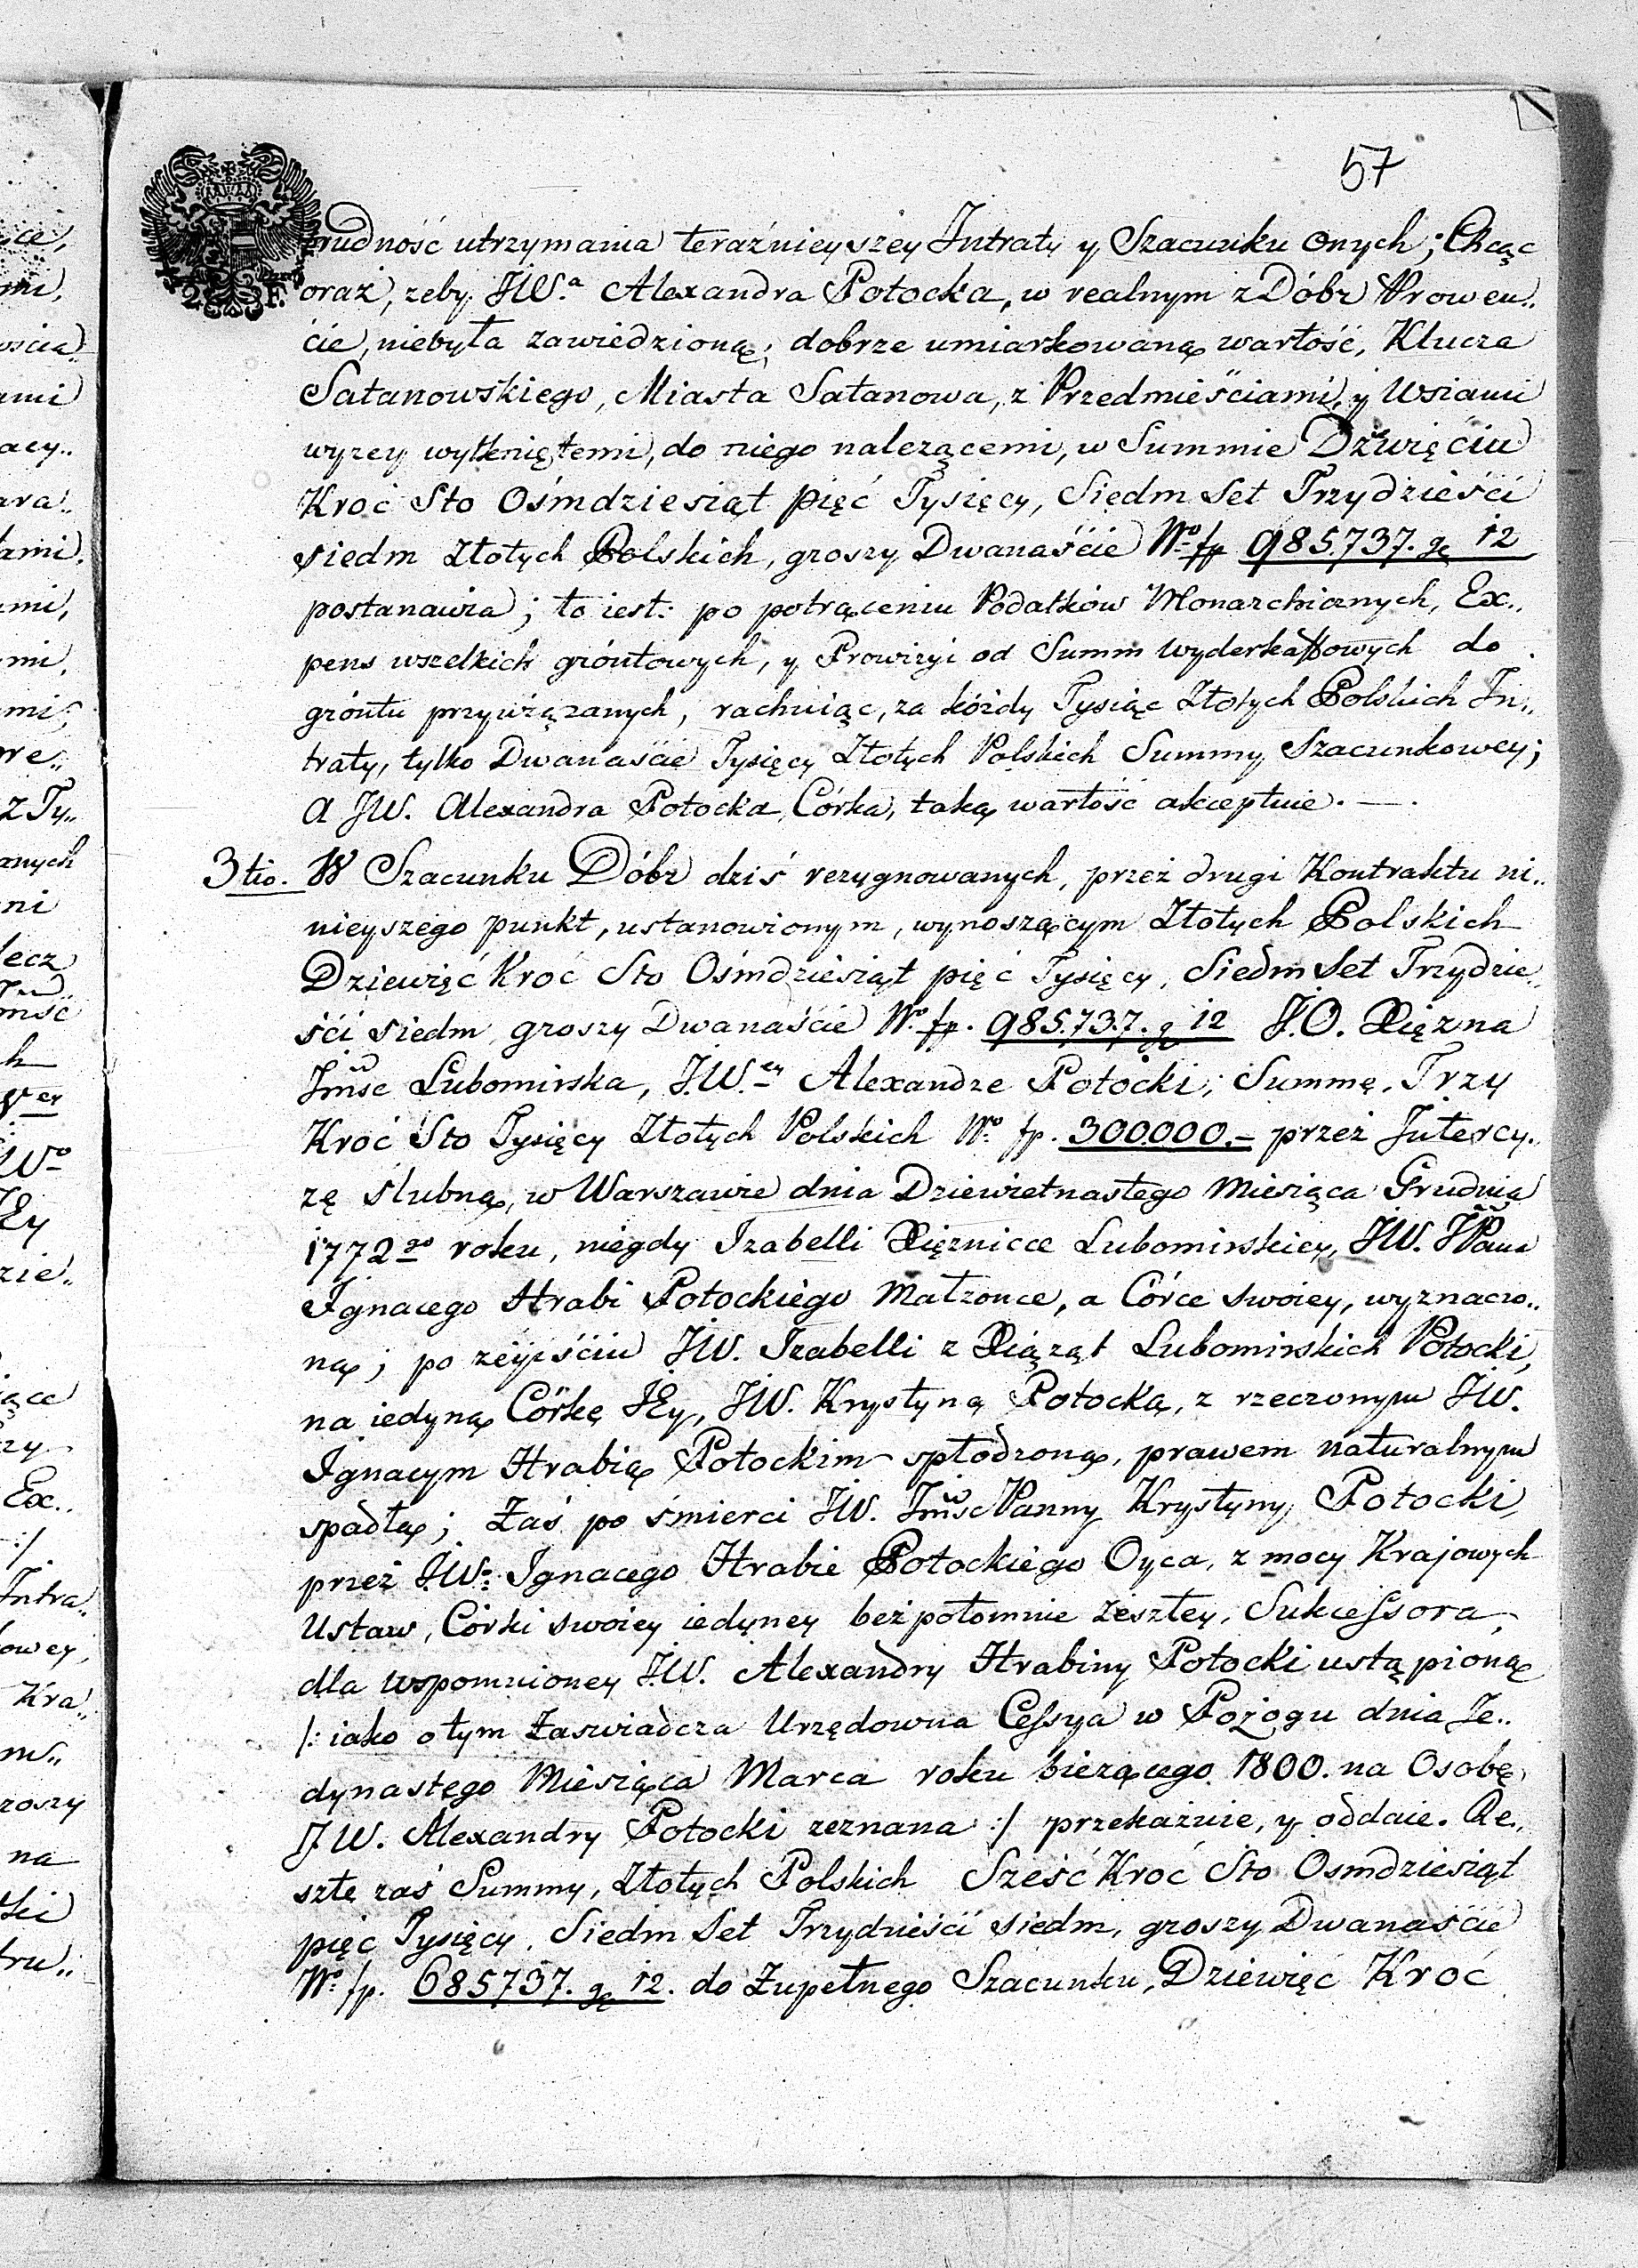 57
2 F.
trudność utrzymania teraźnieyszey Intraty y Szacunku onych; Chcąc
oraz, zeby JW.a Alexandra Potocka, w realnym z Dóbr Prowen„
cie, niebyła zawiedzioną; dobrze umiarkowaną wartość, Klucza
Satanowskiego, Miasta Satanowa, z Przedmieściami, y Wsiami
wyzey wytkniętemi, do niego nalezącemi, w Summie Dziewięciu
Kroć Sto Ośmdziesiąt pięć Tysięcy, Siedm Set Trzydzieści
siedm Złotych Polskich, groszy Dwanaście No fp 985.737. gr 12
postanawia; to iest: po potrąceniu Podatków Monarchicznych, Ex„
pens wszelkich gróntowych, y Prowizyi od Summ Wyderkaffowych do
gróntu przywiązanych, rachuiąc, za kóżdy Tysiąc Złotych Polskich In„
traty, tylko Dwanaście Tysięcy Złotych Polskich Summy Szacunkowey;
a JW. Alexandra Potocka, Córka, taką wartość akceptuie. —.
3tio. W Szacunku Dóbr dziś rezygnowanych, przez drugi Kontraktu ni„
nieyszego punkt, ustanowionym, wynoszącym Złotych Polskich
Dziewięć Kroć Sto Ośmdziesiąt pięć Tysięcy, Siedm Set Trzydzie„
ści siedm groszy Dwanaście No fp. 985.73.7. gr 12 J.O. Xięzna
Jmśc Lubomirska, J.W.ey Alexandrze Potocki; Summę, Trzy
Kroć Sto Tysięcy Złotych Polskich No fp. 300000.– przez Intercy„
zę slubną, w Warszawie dnia Dziewietnastego Miesiąca Grudnia
1772go roku, niegdy Izabelli Xiężnicce Lubomirskiey, JW. JPana
Ignacego Hrabi Potockiego Małzonce, a Córce swoiey, wyznaczo„
ną; po zeyściu JW. Izabelli z Xiąząt Lubomirskich Potocki,
na iedyną Córkę JEy, JW. Krystyną Potocką, z rzeczonym JW.
Ignacym Hrabią Potockim spłodzoną, prawem naturalnym
spadłą; Zaś po śmierci JW. Jmśc Panny Krystyny Potocki,
przez J.Wo Ignacego Hrabie Potockiego Oyca, z mocy Krajowych
Ustaw, Córki swoiey iedyney bezpotomnie zeszłey, Sukcessora,
dla wspomnioney J.W. Alexandry Hrabiny Potocki ustąpioną
/: iako o tym Zaswiadcza Urzędowna Cessya w Pożogu dnia Je„
dynastego Miesiąca Marca roku bieżącego 1800. na Osobę
JW. Alexandry Potocki zeznana :/ przekazuie, y oddaie. Re„
sztę zaś Summy, Złotych Polskich Sześć Kroć Sto Osmdziesiąt
pięc Tysięcy, Siedm Set Trzydzieści siedm, groszy Dwanaście
No fp. 685737. gr 12. do Zupełnego Szacunku, Dziewięć Kroć